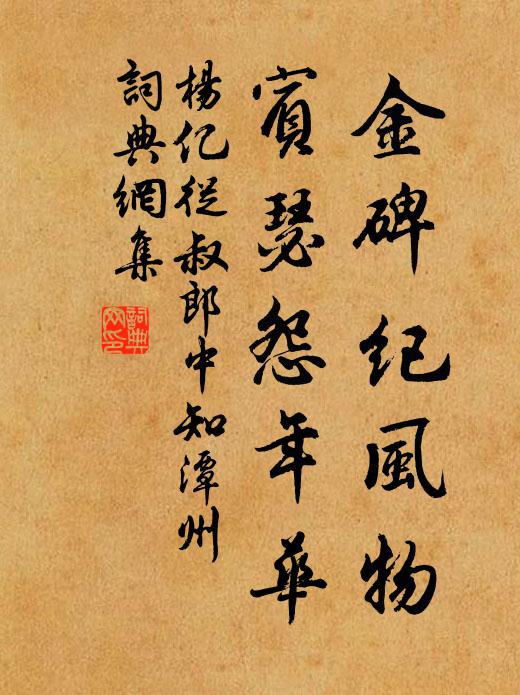 金碑纪風物
賓瑟怨年華
楊亿從叔郎中知潭州
詞典網集
詞典網印